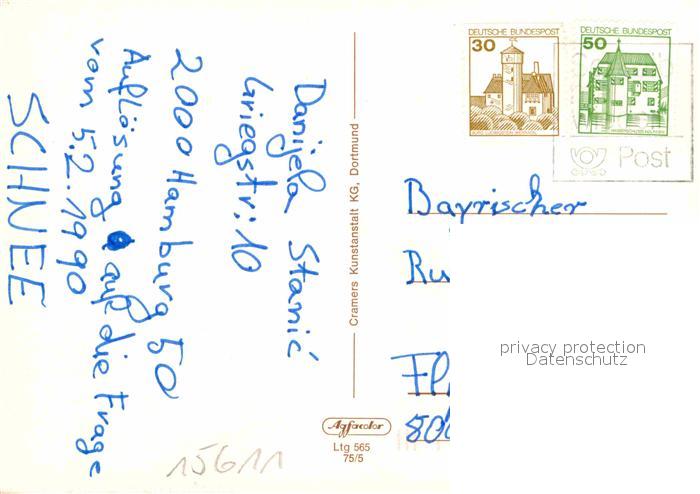 Danijela Stanić
Griegstr. 10
2000 Hamburg 50
Auflösung auf die Frage
vom 5.2.1990
SCHNEE
Cramers Kunstanstalt KG, Dortmund
DEUTSCHE BUNDESPOST
30
DEUTSCHE BUNDESPOST
50
Post
Bayrischer
Ru
privacy protection
Datenschutz
Fl
800
Agfacolor
Ltg 565
75/5
15611